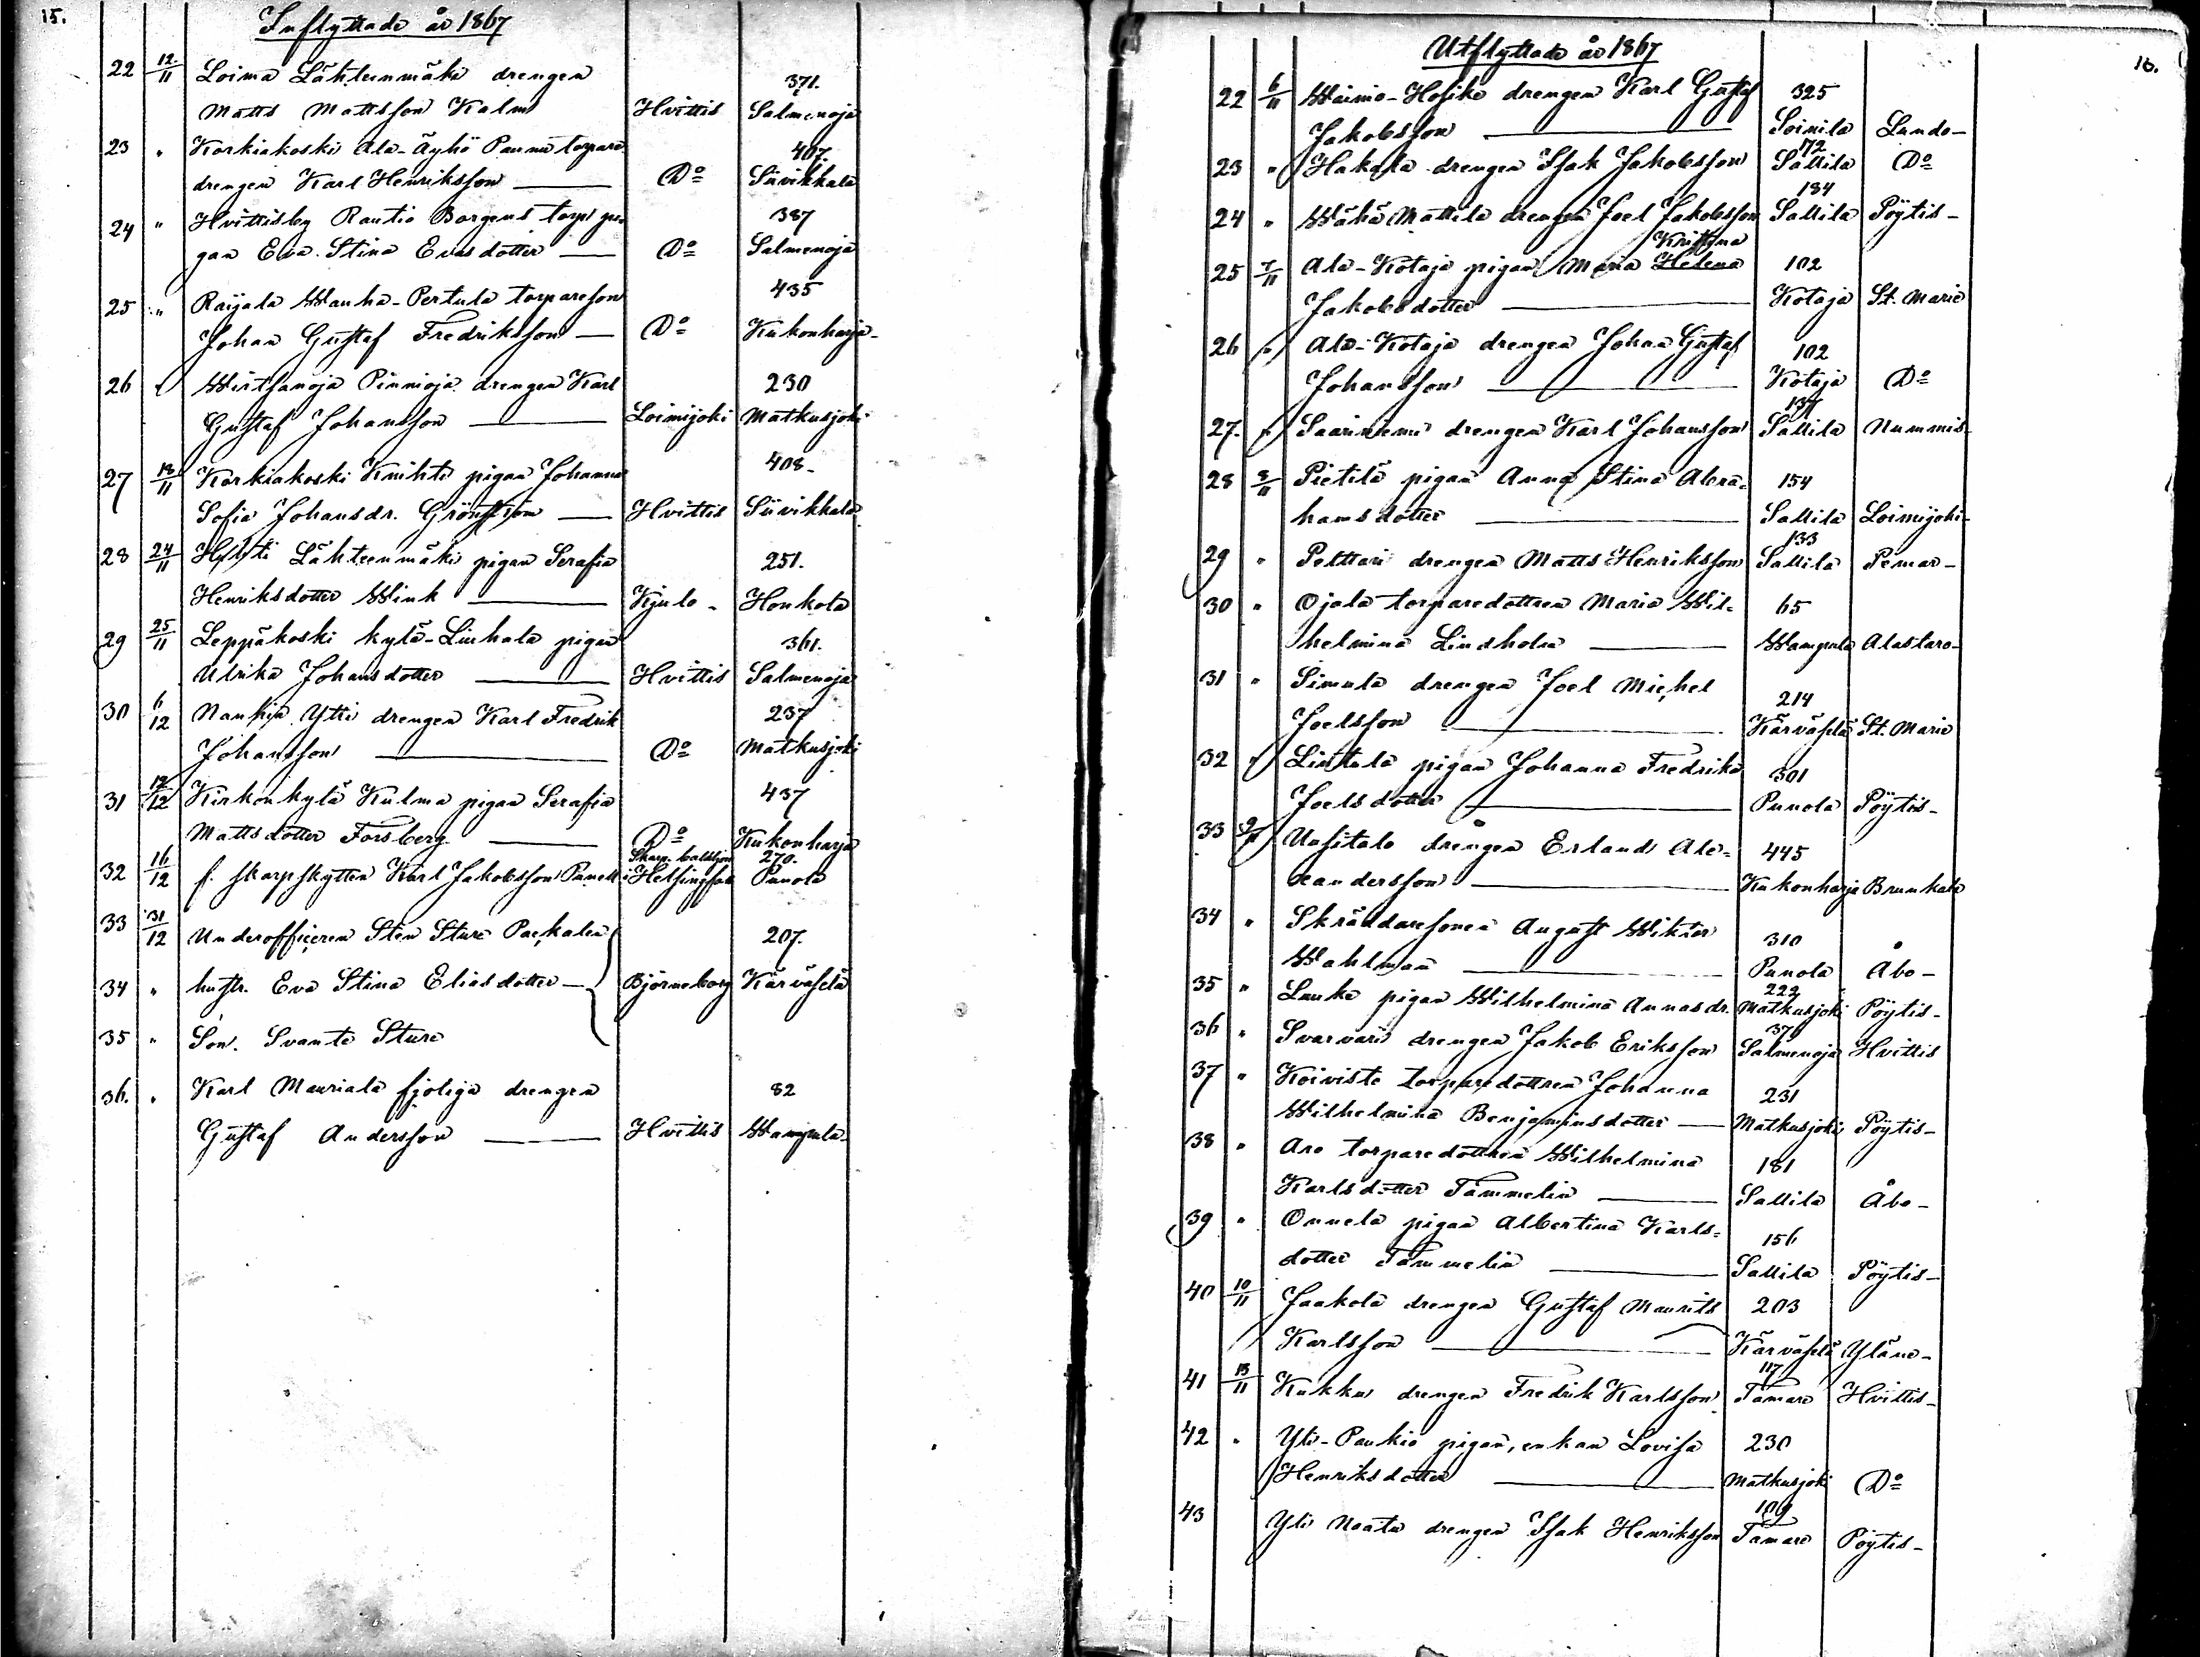 15.
Inflyttade år 1867
371.
22 12/11 Loima Lähteenmäki drengen
Matts Mattsson Kalm Hvittis Salmenoja
407.
23 " Korkiakoski Ala-Äyhö Paunu torpare
drengen Karl Henriksson — Do Siivikkala
387
24 " Hvittisby Rautio Borgens torp pi-
gan Eva Stina Evasdotter — Do Salmenoja
435
25 " Raijala Wanha-Pertula torpareson
Johan Gustaf Fredriksson — Do Kukonharja
230
26 " Wirtsanoja Pinnioja drengen Karl
Gustaf Johansson — Loimijoki Matkusjoki
408
27 13/11 Korkiakoski Knihti pigan Johanna
Sofia Johansdr. Grönström — Hvittis Siivikkala
251.
28 24/11 Huhti Lähteenmäki pigan Serafia
Henriksdotter Wink — Kjulo Honkola
361.
29 25/11 Leppäkoski kylä-Liuhala pigan
Ulrika Johansdotter — Hvittis Salmenoja
237
30 6/12 Nanhia Ytti drengen Karl Fredrik
Johansson — Do Matkusjoki
437
31 12/12 Kirkonkylä Kulma pigan Serafia
Mattsdotter Forsberg — Do Kukonharja
Skarp. bataljon 270.
32 16/12 f. skarpskytten Karl Jakobsson Punell i Helsingfors Punola
33 31/12 Underofficeren Sten Sture Packalen 207.
34 " hustr. Eva Stina Eliasdotter — Björneborg Kärväselä
35 " Son. Svante Sture
36. " Karl Mauriala fjoliga drengen 82
Gustaf Andersson — Hvittis Wampula
16.
Utflyttade år 1867
22 6/11 Wainio-Hosike drengen Karl Gustaf 325
Jakobsson — Soinila Lundo
172
23 " Hakala drengen Isak Jakobsson Sallila Do
184
24 " Wähä Mattila drengen Joel Jakobsson Sallila Pöytis
Kristina
25 7/11 Ala-Kotaja pigan Maria Helena 102
Jakobsdotter — Kotaja St. Marie
26 " Ala-Kotaja drengen Johan Gustaf 102
Johansson — Kotaja Do
137
27. " Saarinemi drengen Karl Johansson Sallila Nummis
28 8/11 Pietilä pigan Anna Stina Abra- 154
hamsdotter — Sallila Loimijoki
133
29 " Pelttari drengen Matts Henriksson Sallila Pemar
30 " Ojala torparedottren Maria Wil- 65
helmina Lindholm — Wampula Alastaro
31 " Simula drengen Joel Michel 214
Joelsson — Kärväselä St. Marie
32 " Lintula pigan Johanna Fredrika 301
Joelsdotter — Punola Pöytis
33 9/11 Uusitalo drengen Erland Ale- 445
xandersson — Kukonharja Brunkala
34 " Skräddaresonen August Wiktor 310
Wahlman — Punola Åbo
222
35 " Lauka pigan Wilhelmina Annasdr. Matkusjoki Pöytis
37
36 " Svarvari drengen Jakob Eriksson Salmenoja Hvittis
37 " Koivisto torparedottren Johanna 231
Wilhelmina Benjaminsdotter — Matkusjoki Pöytis
38 " Aro torparedottren Wilhelmina 181
Karlsdotter Tammelin — Sallila Åbo
39 " Onnela pigan Albertina Karls- 156
dotter Tammelin — Sallila Pöytis
40 10/11 Jaakola drengen Gustaf Maurits 203
Karlsson — Kärväselä Yläne
117
41 13/11 Kukku drengen Fredrik Karlsson Tamare Hvittis
42 " Yli-Paukio pigan, enkan Lovisa 230
Henriksdotter — Matkusjoki Do
109
43 Yli Naatu drengen Isak Henriksson Tamare Pöytis